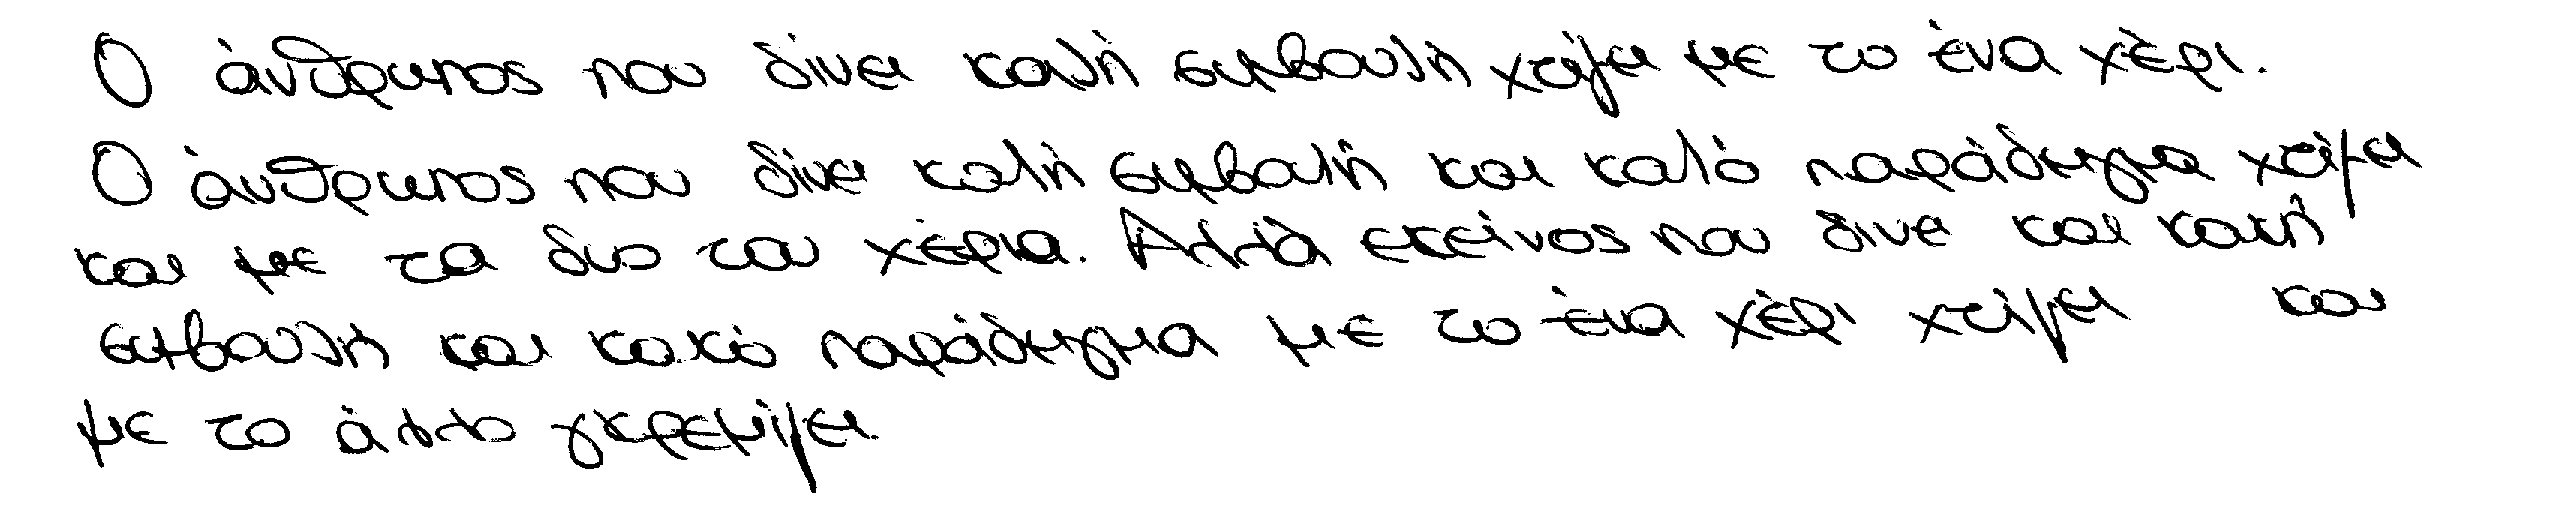 Ο άνθρωπος που δίνει καλή συμβουλή χτίζει με το ένα χέρι.
Ο άνθρωπος που δίνει καλή συμβουλή και καλό παράδειγμα χτίζει
και με τα δυο του χέρια. Αλλά εκείνος που δίνει και κακή
συμβουλή και κακό παράδειγμα με το ένα χέρι χτίζει και
με το άλλο γκρεμίζει